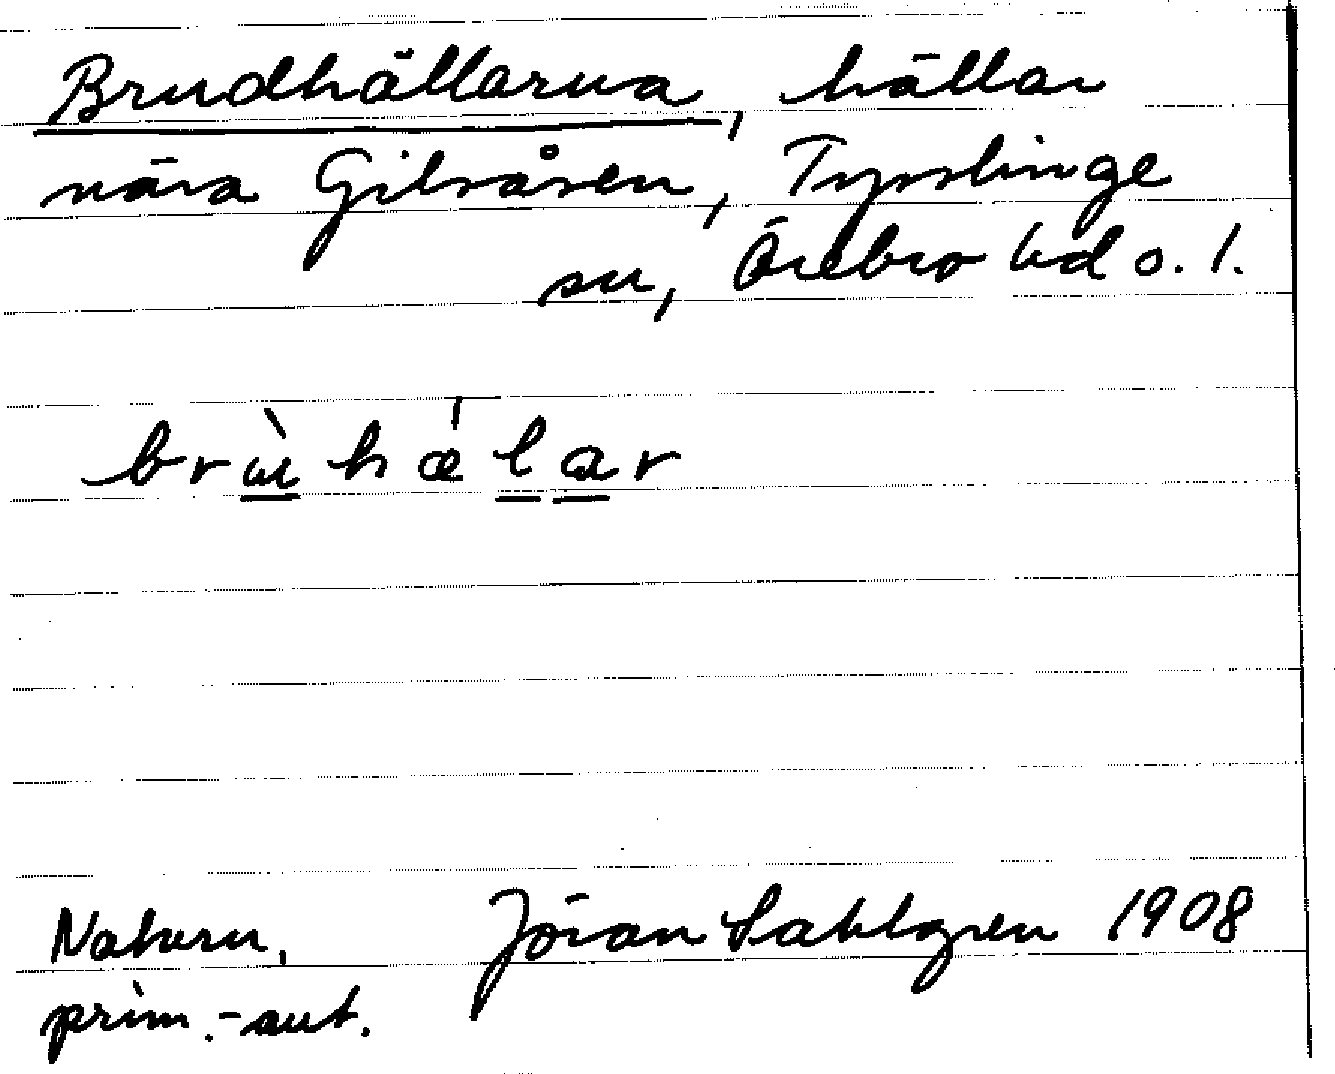 Brudhällarna, hällar
nära Gilsåsen, Tysslinge
sn, Örebro hd o. l.
brùhǽlar
Naturn.
Jöran Sahlgren 1908
prim.-aut.